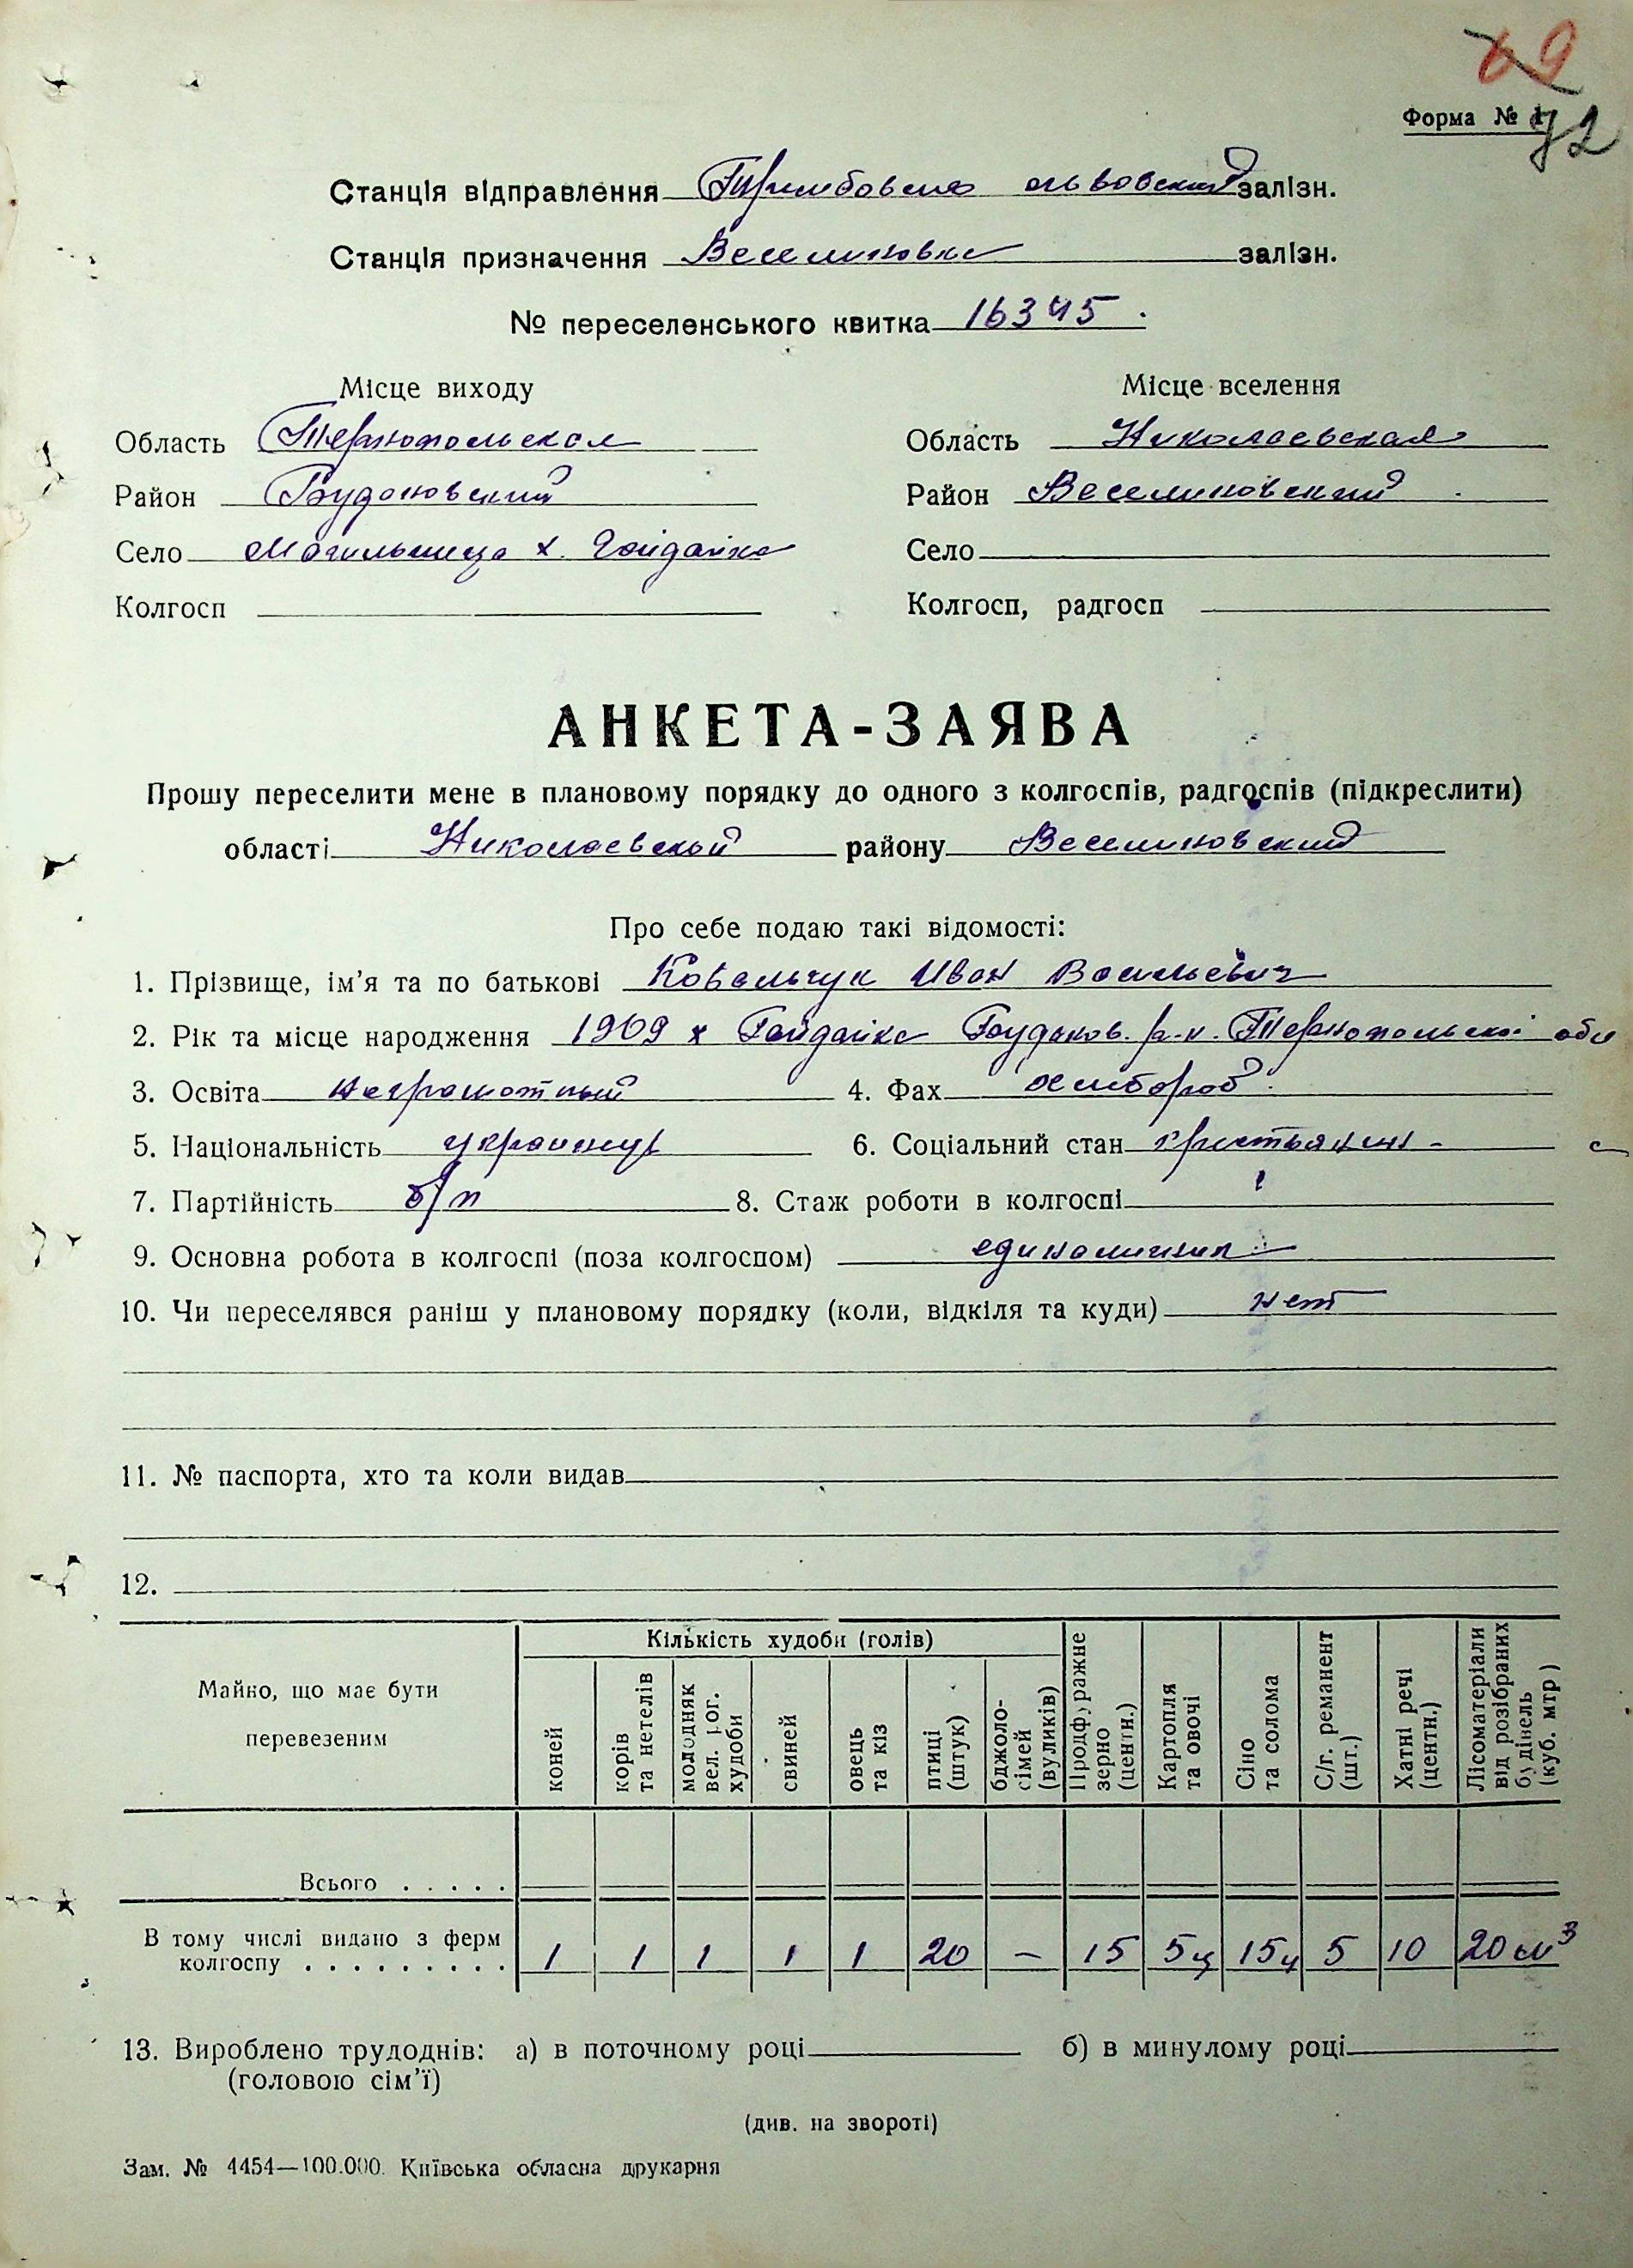 69
Форма № 1
72
Станція відправлення Трембовля львовский залізн.
Станція призначення Веселиновка залізн.
№ переселенського квитка 16345.
Місце виходу Місце вселення
Область Тернопольская Область Николаевская
Район Будановский Район Веселиновский
Село Могильница х. Гайдайка Село
Колгосп Колгосп, радгосп
АНКЕТА-ЗАЯВА
Прошу переселити мене в плановому порядку до одного з колгоспів, радгоспів (підкреслити)
області Николаевской району Веселиновский
Про себе подаю такі відомості:
1. Прізвище, ім'я та по батькові Ковальчук Иван Васильевич
2. Рік та місце народження 1909 х Гайдайка Буданов. р-н. Тернопольской обл
3. Освіта неграмотный 4. Фах хлебороб.
5. Національність украинец 6. Соціальний стан крестьянин -
7. Партійність б/п 8. Стаж роботи в колгоспі
9. Основна робота в колгоспі (поза колгоспом) единоличник
10. Чи переселявся раніш у плановому порядку (коли, відкіля та куди) нет
11. № паспорта, хто та коли видав
12.
Майно, що має бути перевезеним
Кількість худоби (голів)
коней
корів та нетелів
молодняк вел. рог. худоби
свиней
овець та кіз
птиці (штук)
бджоло-сімей (вуликів)
Продфуражне зерно (центн.)
Картопля та овочі
Сіно та солома
С/г. реманент (шт.)
Хатні речі (центн.)
Лісоматеріали від розібраних будівель (куб. мтр)
Всього . . . . .
В тому числі видано з ферм
колгоспу . . . . . . . . . 1 1 1 1 1 20 — 15 5ц 15ц 5 10 20 м³
13. Вироблено трудоднів: а) в поточному році б) в минулому році
(головою сім'ї)
(див. на звороті)
Зам. № 4454—100.000. Київська обласна друкарня